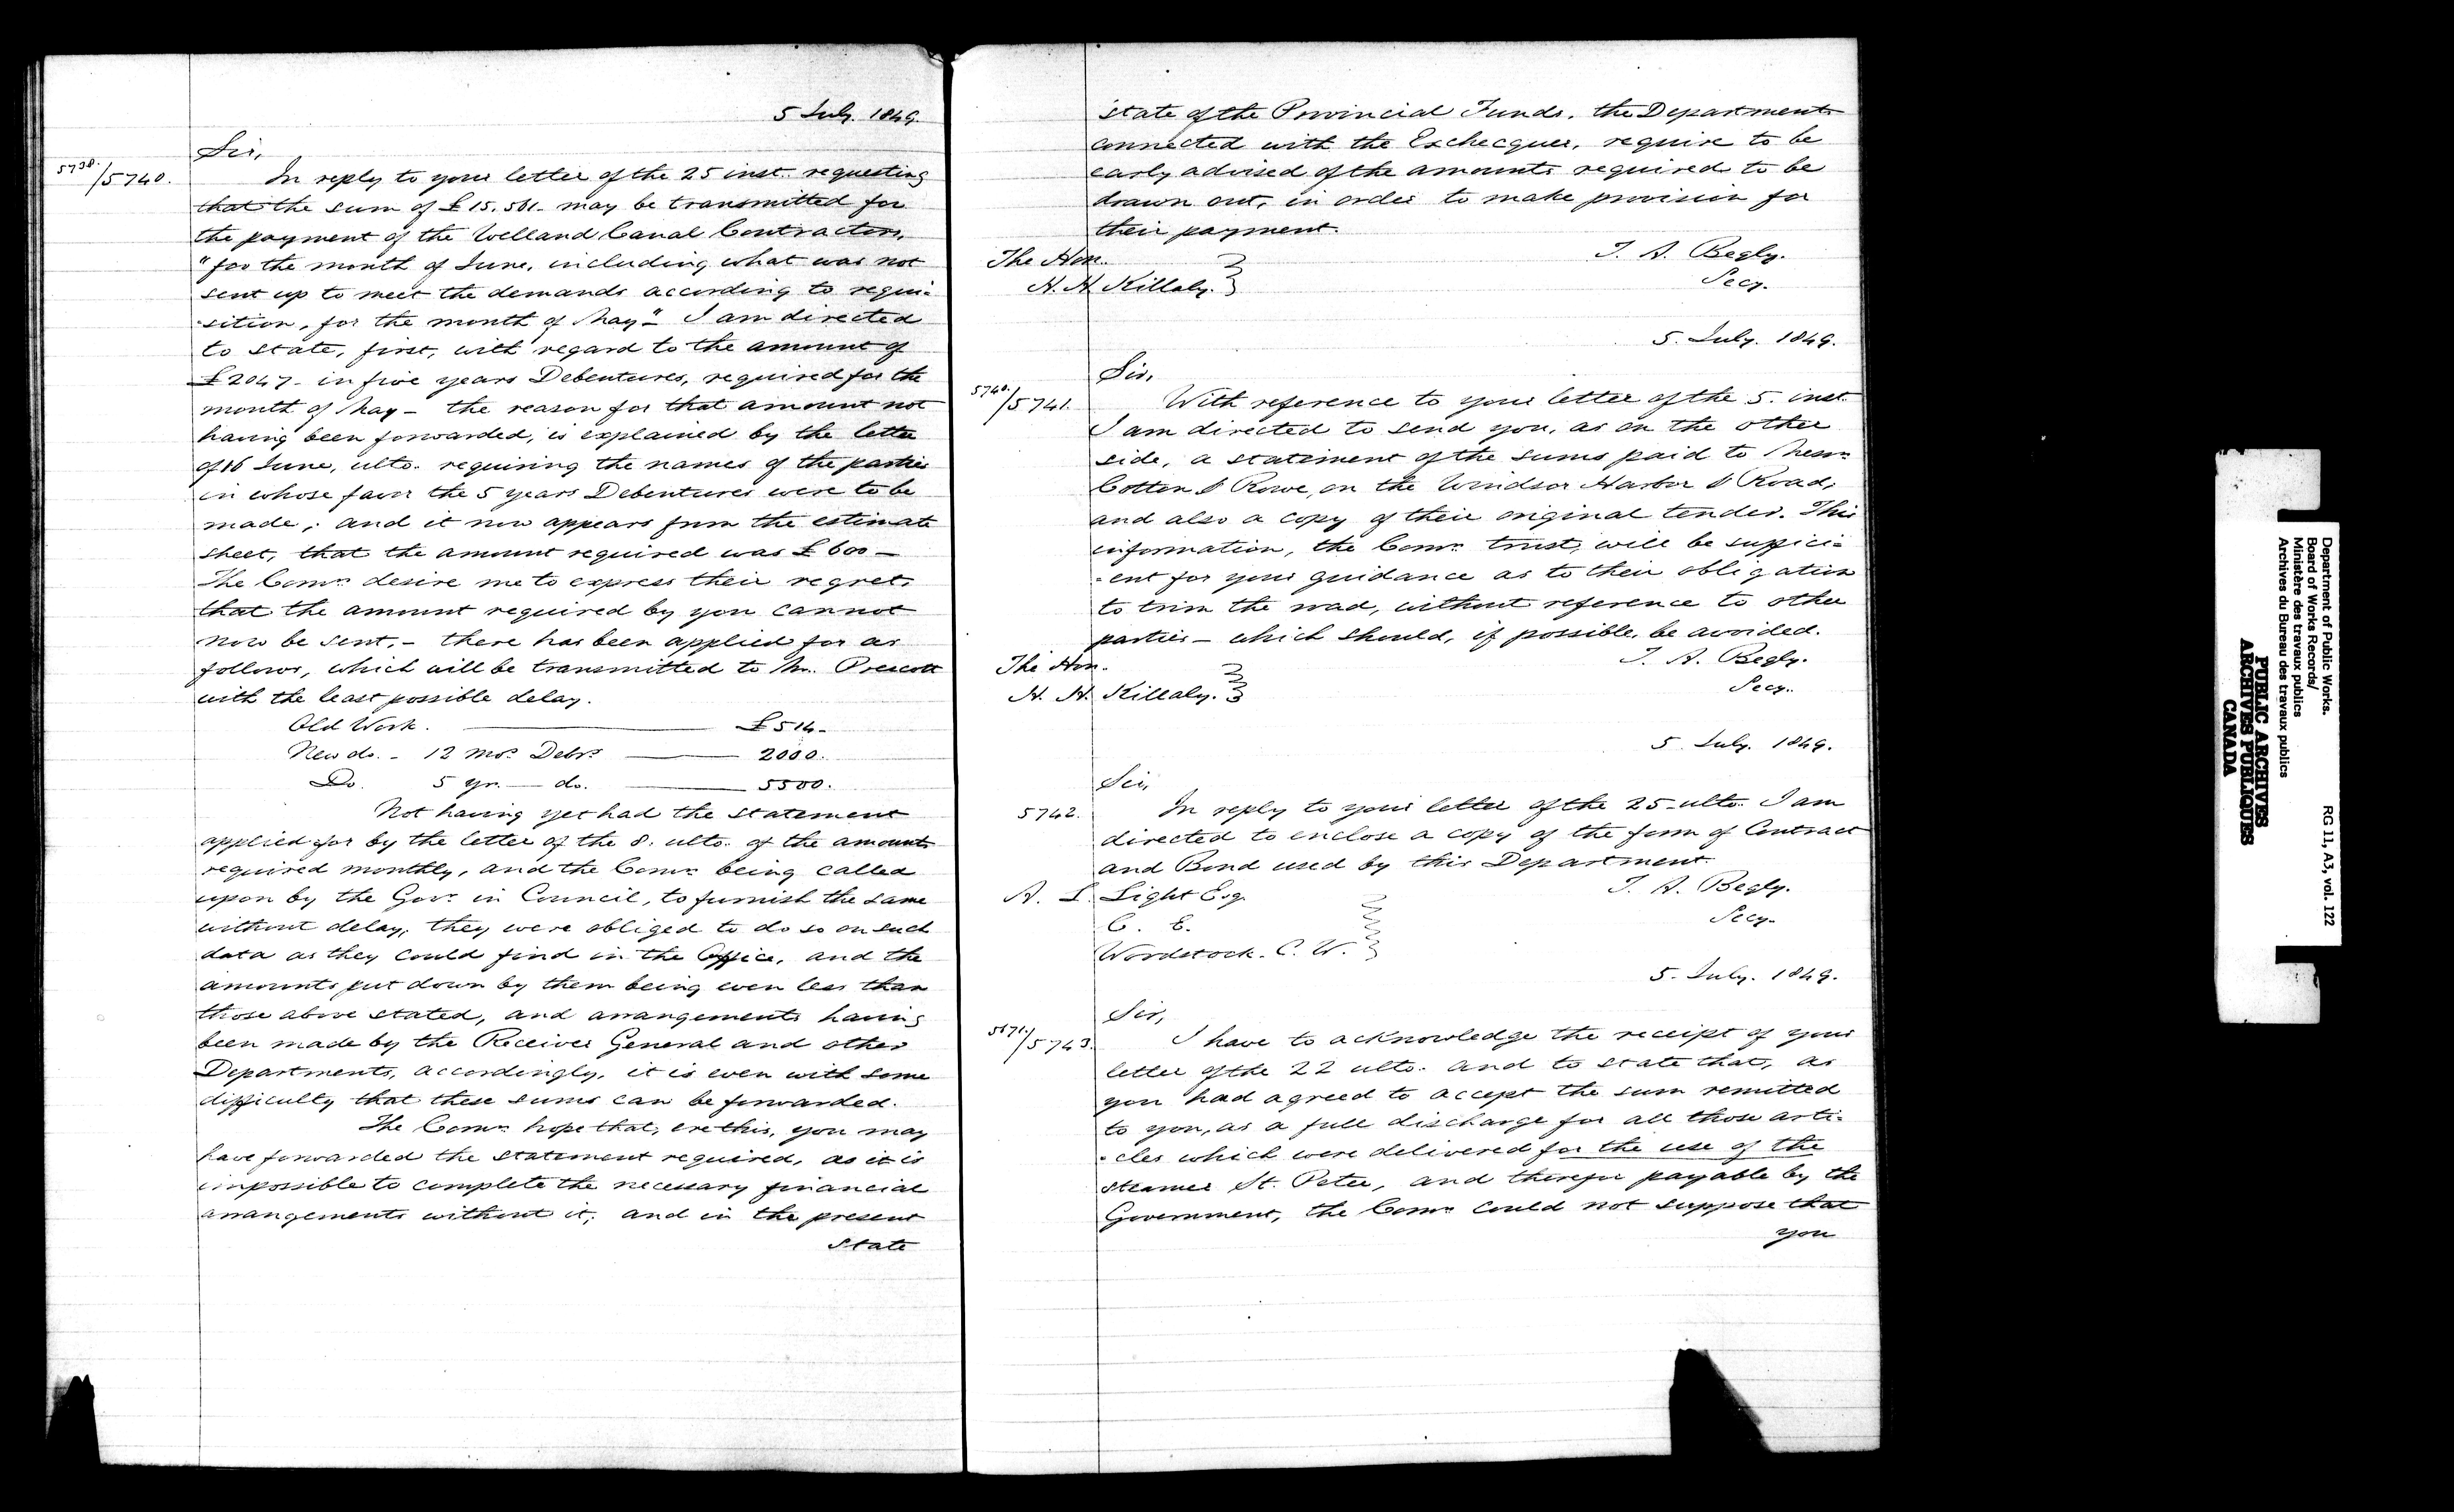 5 July. 1849.
Sir,
5738./5740.
In reply to your letter of the 25 inst. requesting
that the sum of £15.561- may be transmitted for
the payment of the Welland Canal Contractors,
"for the month of June, including what was not
sent up to meet the demands according to requi-
-sition, for the month of May"- I am directed
to state, first, with regard to the amount of
£2047- in five years Debentures, required for the
month of May- the reason for that amount not
having been forwarded, is explained by the letter
of 16 June, ulto. requiring the names of the parties
in whose favr the 5 years Debentures were to be
made; and it now appears from the estimate
sheet, that the amount required was £600-
The Comrs desire me to express their regret,
that the amount required by you cannot
now be sent,- there has been applied for as
follows, which will be transmitted to Mr. Prescott
with the least possible delay.
Old Work. £514-
New do. - 12 mos. Debrs 2000.
Do. 5 yr. - do. 5500.
Not having yet had the statement
applied for by the letter of the 8. ulto. of the amounts
required monthly, and the Comrs being called
upon by the Govr. in Council, to furnish the same
without delay, they were obliged to do so on such
data as they could find in the Office, and the
amounts put down by them being even less than
those above stated, and arrangements having
been made by the Receiver General and other
Departments, accordingly, it is even with some
difficulty that these sums can be forwarded.
The Comrs hope that, ere this, you may
have forwarded the statement required, as it is
impossible to complete the necessary financial
arrangements without it; and in the present
state
state of the Provincial Funds, the Departments
connected with the Exchecquer, require to be
early advised of the amounts required to be
drawn out, in order to make provision for
their payment.
T. A. Begly.
Secy.
The Hon.
H. H. Killaly.
5. July. 1849.
Sir,
5740./5741.
With reference to your letter of the 5. inst.
I am directed to send you, as on the other
side, a statement of the sums paid to Messrs
Cotton & Rowe, on the Windsor Harbor & Road,
and also a copy of their original tender. This
information, the Comrs trust, will be suffici-
-ent for your guidance as to their obligation
to trim the road, without reference to other
parties- which should, if possible, be avoided.
T. A. Begly.
Secy.
The Hon.
H. H. Killaly.
5. July. 1849.
Sir,
5742.
In reply to your letter of the 25-ulto. I am
directed to enclose a copy of the form of Contract
and Bond used by this Department.
T. A. Begly.
Secy.
A. L. Light Esq.
C. E.
Woodstock. C. W.
5. July. 1849.
Sir,
5671./5743.
I have to acknowledge the receipt of your
letter of the 22 ulto. and to state that, as
you had agreed to accept the sum remitted
to you, as a full discharge for all those arti-
-cles which were delivered for the use of the
steamer St. Peter, and therefor payable by the
Government, the Comrs could not suppose that
you
Department of Public Works.
Board of Works Records/
Ministère des travaux publics
Archives du Bureau des travaux publics
RG 11, A3, vol. 122
PUBLIC ARCHIVES
ARCHIVES PUBLIQUES
CANADA